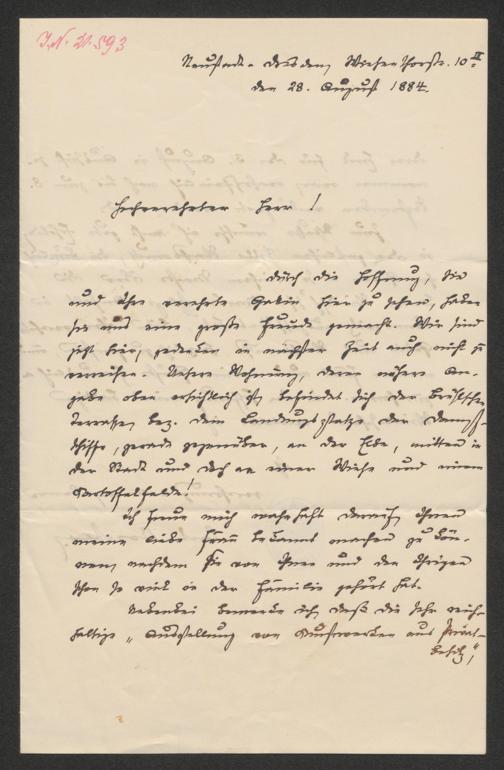 J.N. 21.593
Neustadt-Dresden, Wiesenthorstr. 10 II
den 28. August 1884.
Hochverehrter Herr!
Durch die Hoffnung, Sie
und Ihre verehrte Gattin hier zu sehen, haben
Sie uns eine große Freude gemacht. Wir sind
jetzt hier, gedenken in nächster Zeit auch nicht zu
verreisen. Unsere Wohnung, deren nähere An-
gabe oben ersichtlich ist, befindet sich der Brühlschen
Terrasse, bez. dem Landungsplatze der Dampf-
schiffe, gerade gegenüber, an der Elbe, mitten in
der Stadt und doch an einer Wiese und einem
Kartoffelfelde!
Ich freue mich wahrhaft darauf, Ihnen
meine liebe Frau bekannt machen zu kön-
nen, nachdem sie von Ihnen und den Ihrigen
schon so viel in der Familie gehört hat.
Nebenbei bemerke ich, daß die sehr reich-
haltige „Ausstellung von Kunstwerken aus Privat-
besitz",